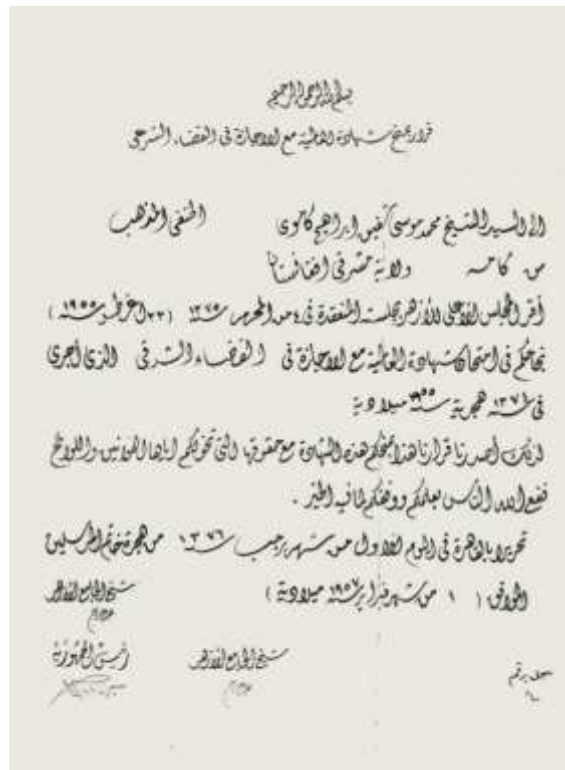 بسم الله الرحمن الرحيم
قرار بمنح شهادة العالمية مع الاجازة فى القضاء الشرعى
الى السيد الشيخ محمد موسى ابراهيم كاموى الحنفى المذهب
من كامه ولاية مشرقى افغانستان
أقر المجلس الأعلى للأزهر بجلسته المنعقدة فى من المحرم سنة ١٣٧٥ (٢٣ اغسطس سنة ١٩٥٥)
نجاحكم فى امتحان شهادة العالمية مع الاجازة فى القضاء الشرعى الذى أجرى
فى سنة هجرية سنة ١٩٥٥ ميلادية
لذلك أصدرنا قرارنا هذا بمنحكم هذه الشهادة مع حقوقها التى تخولكم اياها القوانين واللوائح
نفع الله الناس بعلمكم ووفقكم لما فيه الخير .
تحريرا بالقاهرة فى اليوم الاول من شهر رجب سنة ١٣٧٦ من هجرة خاتم المرسلين
الموافق ( ١ من شهر فبراير سنة ١٩٥٧ ميلادية )
شيخ الجامع الأزهر
رئيس الجمهورية
شيخ الجامع الأزهر
سجل برقم